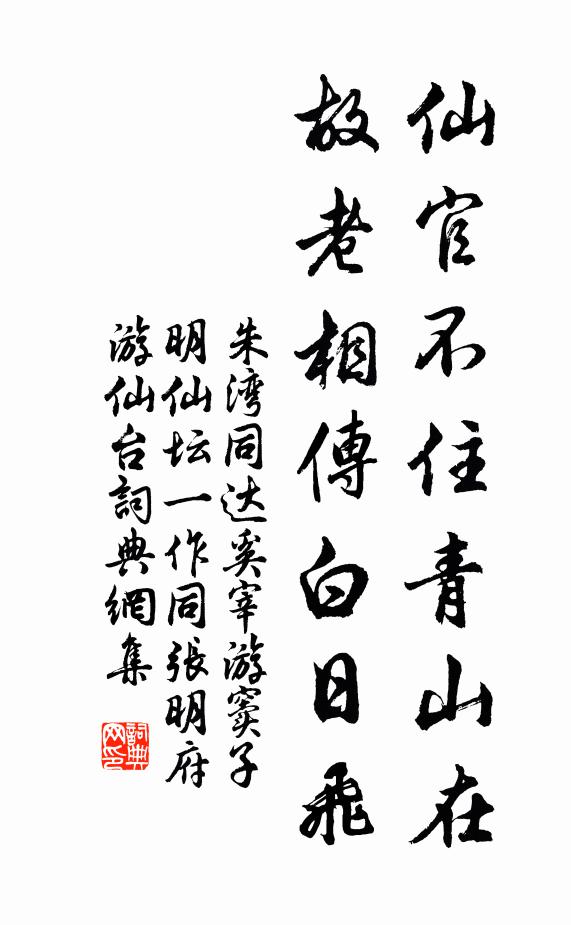 仙官不住青山在
故老相傳白日飛
朱湾同达奚宰游窦子
明仙坛一作同張明府
游仙台詞典網集
詞典网印